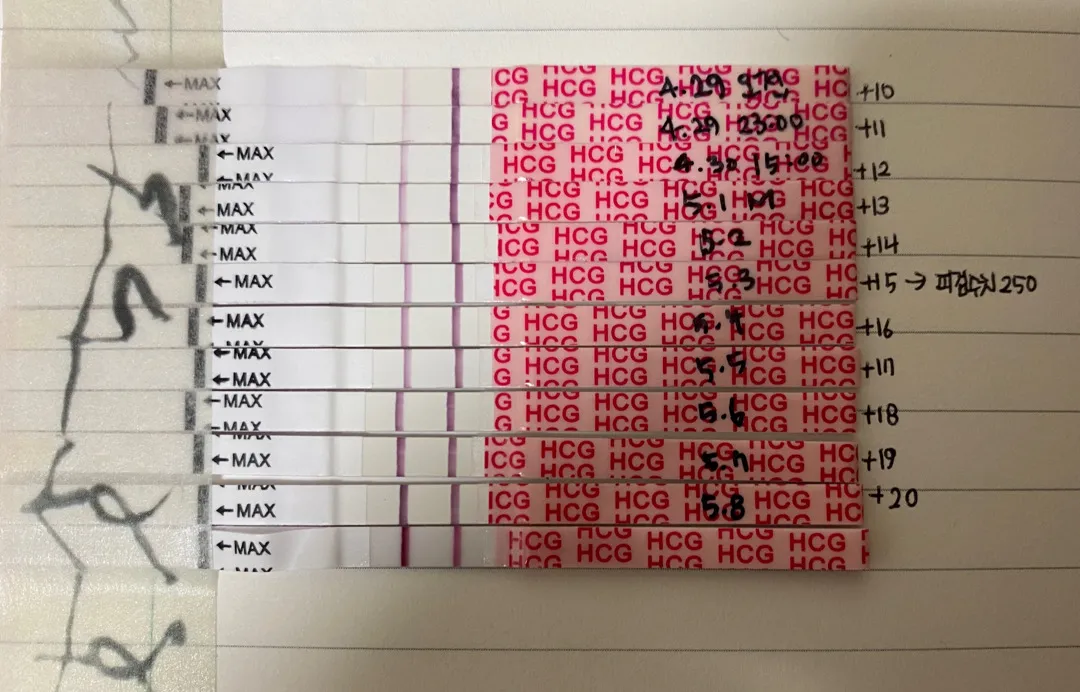 ←MAX HCG HCG HCG HCG 4.29 +10
←MAX HCG HCG HCG HCG 4.29 23:00 +11
←MAX HCG HCG HCG HCG 4.30 15:00 +12
←MAX HCG HCG HCG HCG 5.1 +13
←MAX HCG HCG HCG HCG 5.2 +14
←MAX HCG HCG HCG HCG 5.3 +15 → 피검수치 250
←MAX HCG HCG HCG HCG 5.4 +16
←MAX HCG HCG HCG HCG 5.5 +17
←MAX HCG HCG HCG HCG 5.6 +18
←MAX HCG HCG HCG HCG 5.7 +19
←MAX HCG HCG HCG HCG 5.8 +20
←MAX HCG HCG HCG HCG